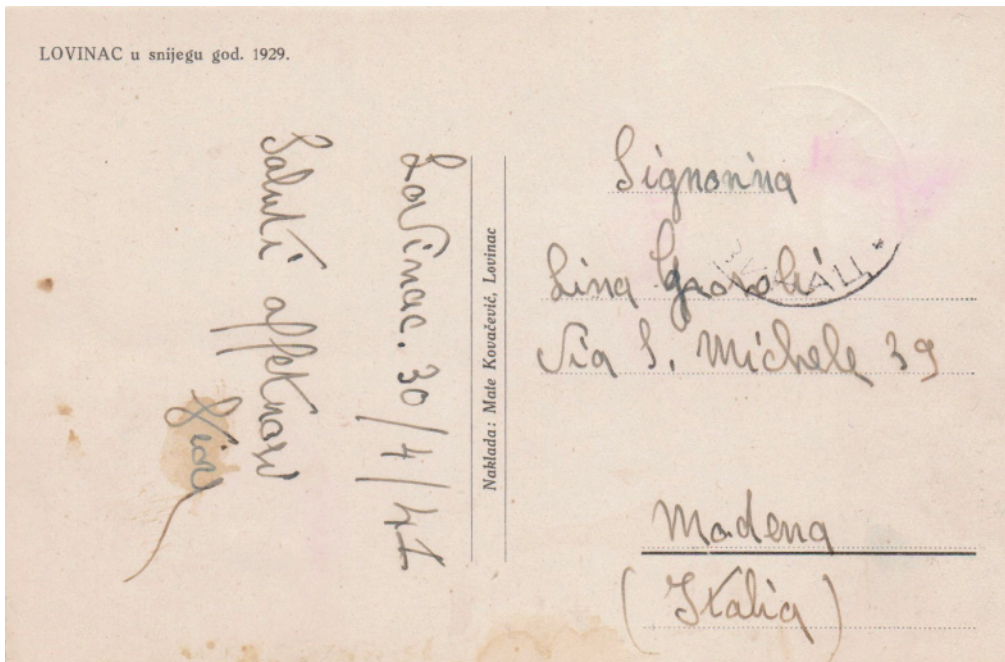 LOVINAC u snijegu god. 1929.
Lovinac. 30/4/41
Saluti affettuosi
Naklada: Mate Kovačević, Lovinac
Signorina
Lina
Via S. Michele 39
Modena
(Italia)